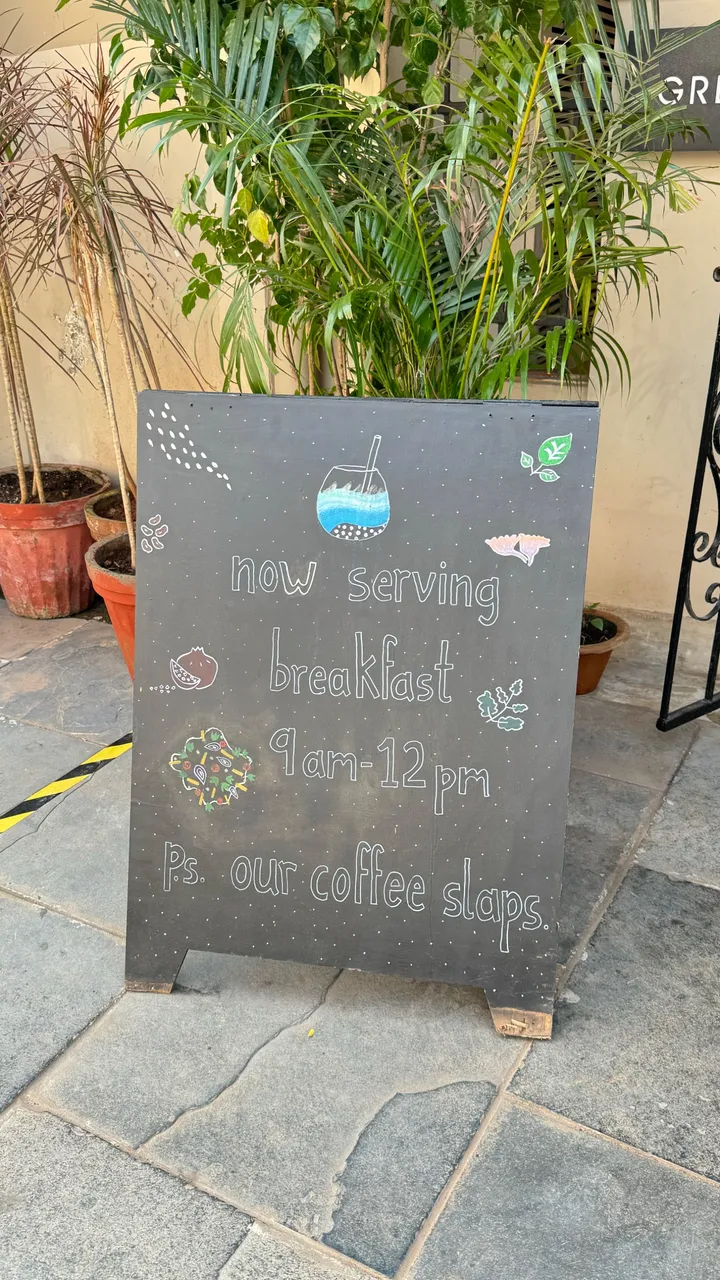 now serving
breakfast
9am-12pm
p.s. our coffee slaps.